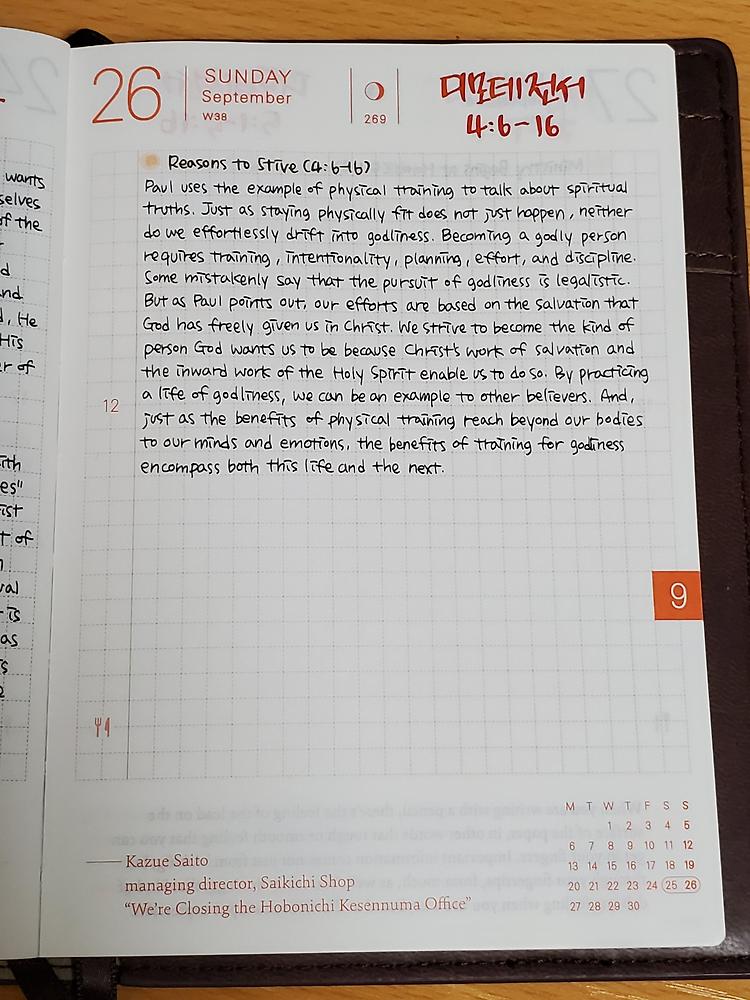 26
SUNDAY
September
W38
269
디모데전서
4:6-16
Reasons to Strive (4:6-16)
Paul uses the example of physical training to talk about spiritual
truths. Just as staying physically fit does not just happen, neither
do we effortlessly drift into godliness. Becoming a godly person
requires training, intentionality, planning, effort, and discipline.
Some mistakenly say that the pursuit of godliness is legalistic.
But as Paul points out, our efforts are based on the salvation that
God has freely given us in Christ. We strive to become the kind of
person God wants us to be because Christ's work of salvation and
the inward work of the Holy Spirit enable us to do so. By practicing
a life of godliness, we can be an example to other believers. And,
12
just as the benefits of physical training reach beyond our bodies
to our minds and emotions, the benefits of training for godliness
encompass both this life and the next.
9
M T W T F S S
1 2 3 4 5
6 7 8 9 10 11 12
13 14 15 16 17 18 19
20 21 22 23 24 25 26
27 28 29 30
—— Kazue Saito
managing director, Saikichi Shop
"We're Closing the Hobonichi Kesennuma Office"
wants
selves
of the
and
d, He
His
er of
ith
es"
rist
t of
val
is
as